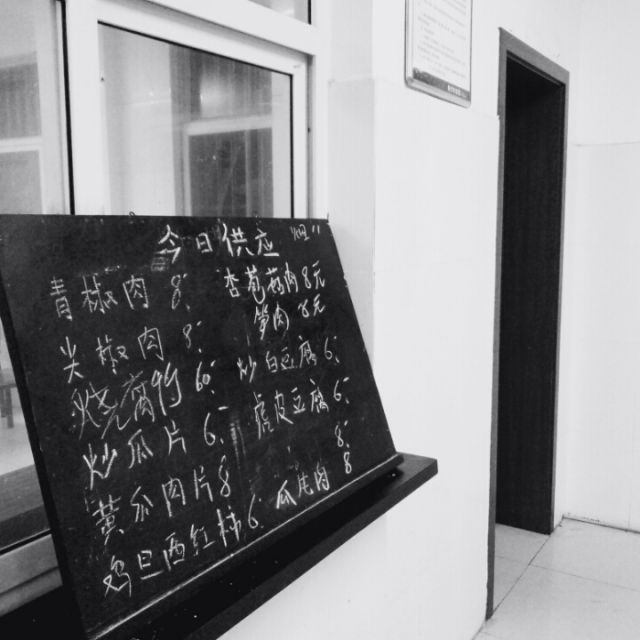 今日供应
青椒肉 8
尖椒肉 8
烧腐竹 6
炒瓜片 6
黄瓜肉片 8
鸡旦西红柿 6
杏苞菇肉 8元
笋肉 8元
炒白豆腐 6
虎皮豆腐 6
8
瓜片肉 8